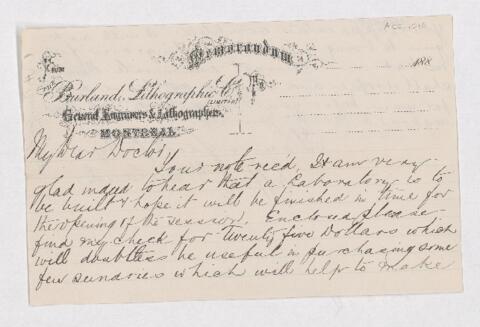 Memorandum
From
To
188
THE
Burland Lithographic Co
(LIMITED)
General Engravers & Lithographers
MONTREAL
My dear Doctor,
Your note recd, & am very
glad indeed to hear that a Laboratory is to
be built & hope it will be finished in time for
the opening of the session. Enclosed please
find my check for twenty five Dollars which
will doubtless be useful in purchasing some
few sundries which will help to make